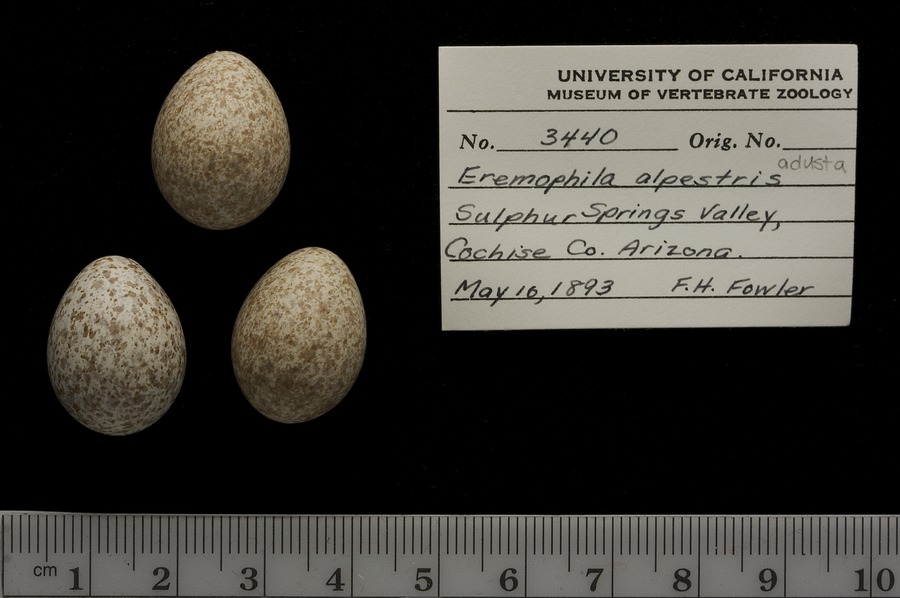 UNIVERSITY OF CALIFORNIA
MUSEUM OF VERTEBRATE ZOOLOGY
No. 3440 Orig. No.
adusta
Eremophila alpestris
Sulphur Springs Valley,
Cochise Co. Arizona.
May 10, 1893 F.H. Fowler
cm 1 2 3 4 5 6 7 8 9 10